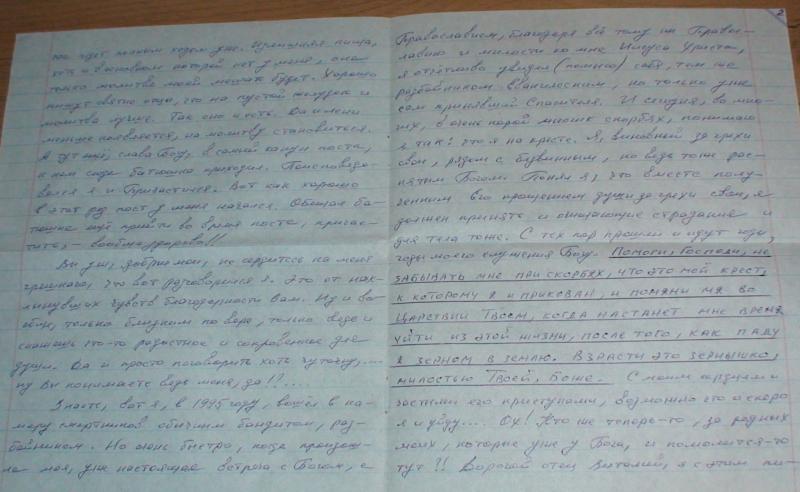 идёт полным ходом уже. Излишняя пища,
хоть и в основном которой нет у меня, она
только молитве моей мешать будет. Хорошо
пишут святые отцы, что на пустой желудок и
молитва лучше. Так оно и есть. Да и лени
меньше появляется, на молитву становиться.
А тут ещё, слава Богу, в самый канун поста,
к нам сюда батюшка приходил. Поисповедо-
вался я и Причастился. Вот как хорошо
в этот год пост у меня начался. Обещал ба-
тюшка ещё прийти во время поста, причас-
тить, – вообще здорово!!
Вы уж, добрые мои, не сердитесь на меня
грешного, что вот разговорился я. Это от нах-
лынувших чувств благодарности Вам. Ну и во-
обще, только близким по вере, только ведь и
скажешь что-то радостное и сокровенное для
души. Да и просто поговорить хоть чуточку, ...
ну Вы понимаете ведь меня, да!?....
Знаете, вот я, в 1995 году, вошёл в ка-
меру смертников обычным бандитом, раз-
бойником. Но очень быстро, когда произош-
ла моя, уже настоящая встреча с Богом, с
2
Православием, благодаря всё тому же Право-
славию и милости ко мне Иисуса Христа,
я отчётливо увидел (помню) себя, тем же
разбойником Евангельским, но только уже
сам принявший Спасителя. И сегодня, во мно-
гих, в очень порой многих скорбях, понимаю
я так: что я на кресте. Я, виновный за грехи
свои, рядом с безвинным, но ведь тоже рас-
пятым Богом. Понял я, что вместе полу-
ченным Его прощением души за грехи свои, я
должен принять и очищающие страдания и
для тела тоже. С тех пор прошли и идут годы,
годы моего служения Богу. Помоги, Господи, не
забывать мне при скорбях, что это мой крест,
к которому я и прикован, и помяни мя во
Царствии Твоем, когда настанет мне время
уйти из этой жизни, после того, как паду
я зерном в землю. Взрасти это зёрнышко,
милостью Твоей, Боже. С моим сердцем и
частыми его приступами, возможно что и скоро
я и уйду.... Ох! Кто же теперь-то, за родных
моих, которые уже у Бога, и помолится-то
тут!! Дорогой отец Виталий, я с этим пи-